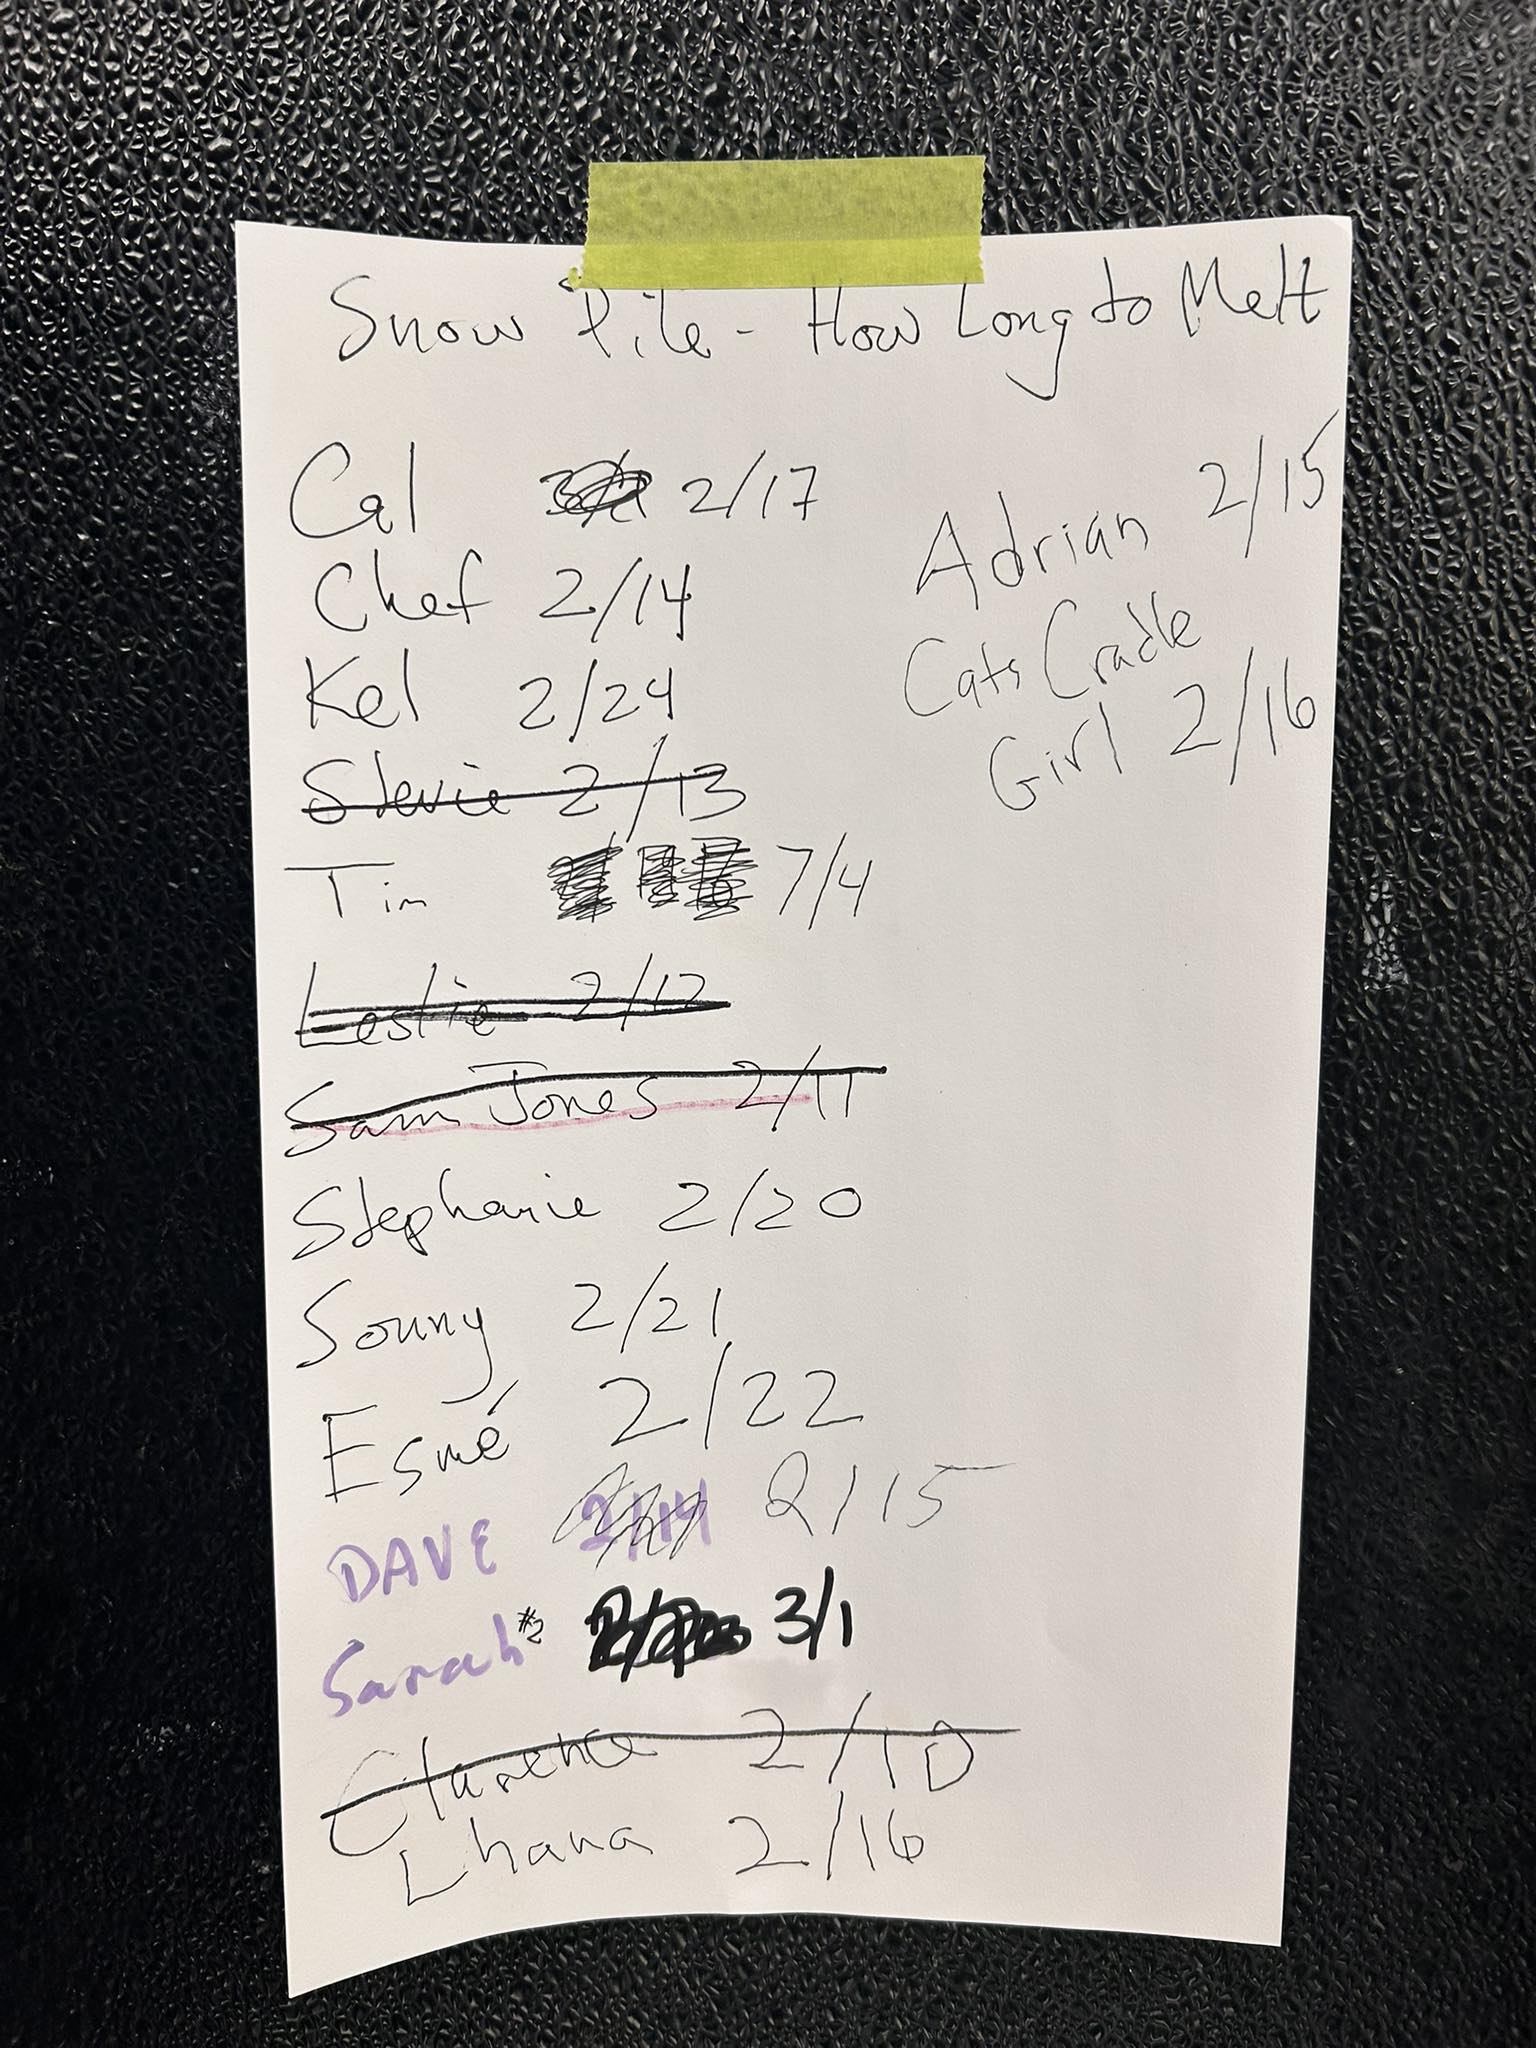 Snow Pile - How Long to Melt
Cal 2/17
Chef 2/14
Kel 2/24
Stevie 2/13
Tim 7/4
Leslie 2/12
Sam Jones 2/11
Stephanie 2/20
Sonny 2/21
Esmé 2/22
DAVE 2/14 2/15
Sarah #2 3/1
Clarence 2/10
Lhana 2/16
Adrian 2/15
Cats Cradle
Girl 2/16